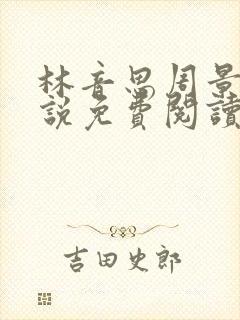 林音思周景
說免費閱讀
吉田史郎